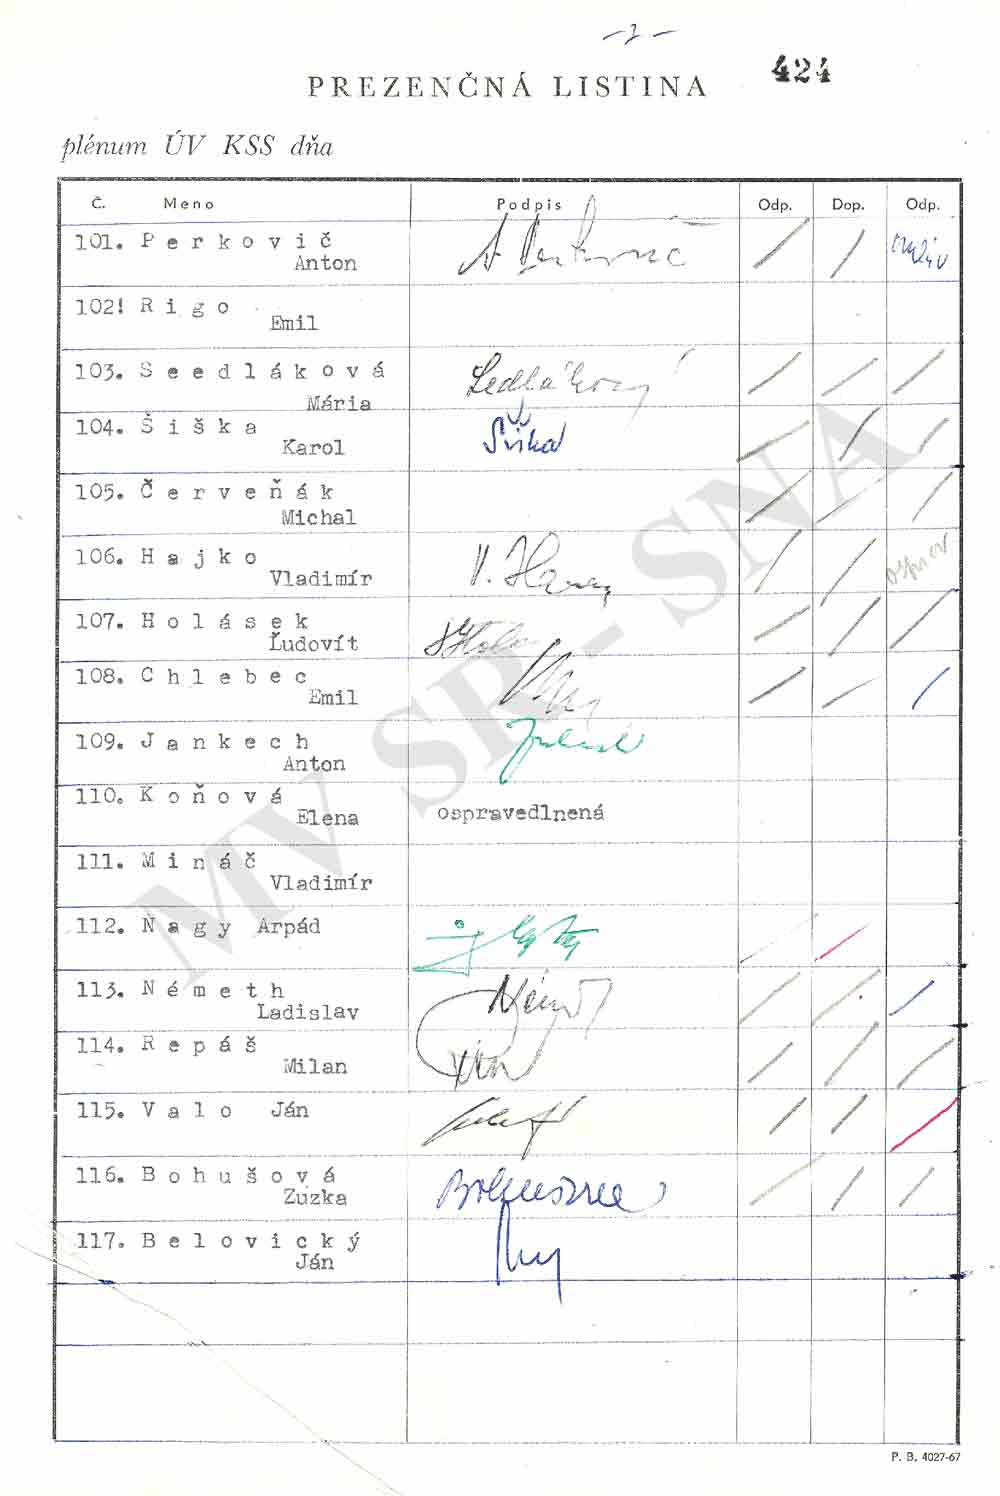 - 7 -
424
PREZENČNÁ LISTINA
plénum ÚV KSS dňa
Č. Meno Podpis Odp. Dop. Odp.
101. Perkovič
Anton
A Perkovič
102! Rigo
Emil
103. Seedláková
Mária
Sedláková
104. Šiška
Karol
Šiška
105. Červeňák
Michal
106. Hajko
Vladimír
V. Hajko
osprav
107. Holásek
Ľudovít
108. Chlebec
Emil
109. Jankech
Anton
110. Koňová
Elena
ospravedlnená
111. Mináč
Vladimír
112. Nagy Arpád
113. Németh
Ladislav
Németh
114. Repáš
Milan
115. Valo Ján
116. Bohušová
Zuzka
Bohušová
117. Belovický
Ján
MV SR - SNA
P. B. 4027-67